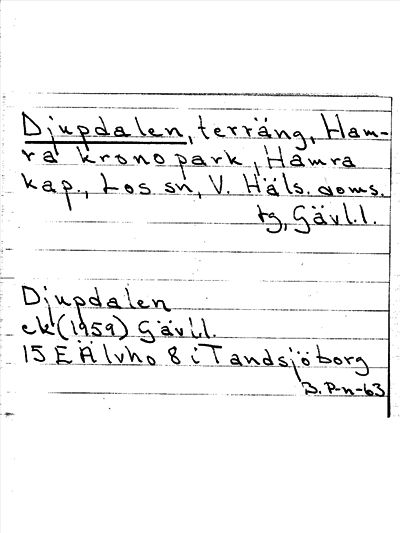 Djupdalen, terräng, Ham-
ra kronopark, Hamra
kap., Los sn, V. Häls. doms.
tg, Gävl.l.
Djupdalen
ek (1959) Gävll.
15 E Älvho 8 i Tandsjöborg
B. P-n-63